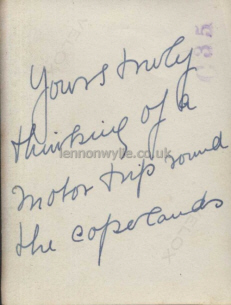 Yours truly
thinking of a
motor trip round
the copelands
lennonwylie.co.uk
VELOX